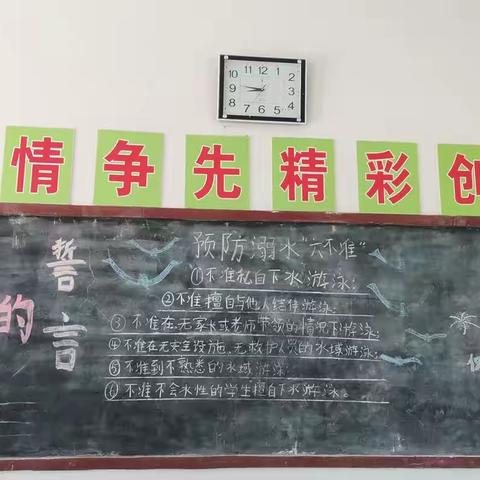 情争先精彩创
12
11
1
10
2
9
3
8
4
7
5
6
的
誓言
预防溺水“六不准”
①不准私自下水游泳；
②不准擅自与他人结伴游泳；
③不准在无家长或老师带领的情况下游泳；
④不准在无安全设施、无救护人员的水域游泳；
⑤不准到不熟悉的水域游泳
⑥不准不会水性的学生擅自下水游泳。